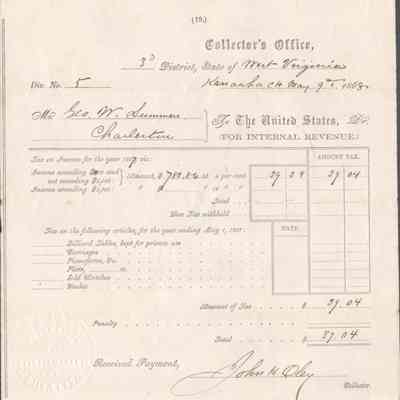 (19.)
Collector's Office,
3d District, State of West Virginia
Div. No. 5 Kanawha CH May 9th, 1868.
Mr. Geo. W. Summers
Charleston
To The United States, Dr.
(FOR INTERNAL REVENUE.)
Tax on Income for the year 1867, viz:
AMOUNT TAX.
Income exceeding and
not exceeding (Amount, $ at per cent 39 04 39 04
Income exceeding
Total
Less Tax withheld
Tax on the following articles, for the year ending May 1, 1868:
RATE.
Billiard Tables, kept for private use
Carriages
Pianofortes, &c.
Plate, oz.
Gold Watches
Amount of Tax $ 39.04
Penalty
Total $ 39.04
Received Payment,
John H. Oley
Collector.